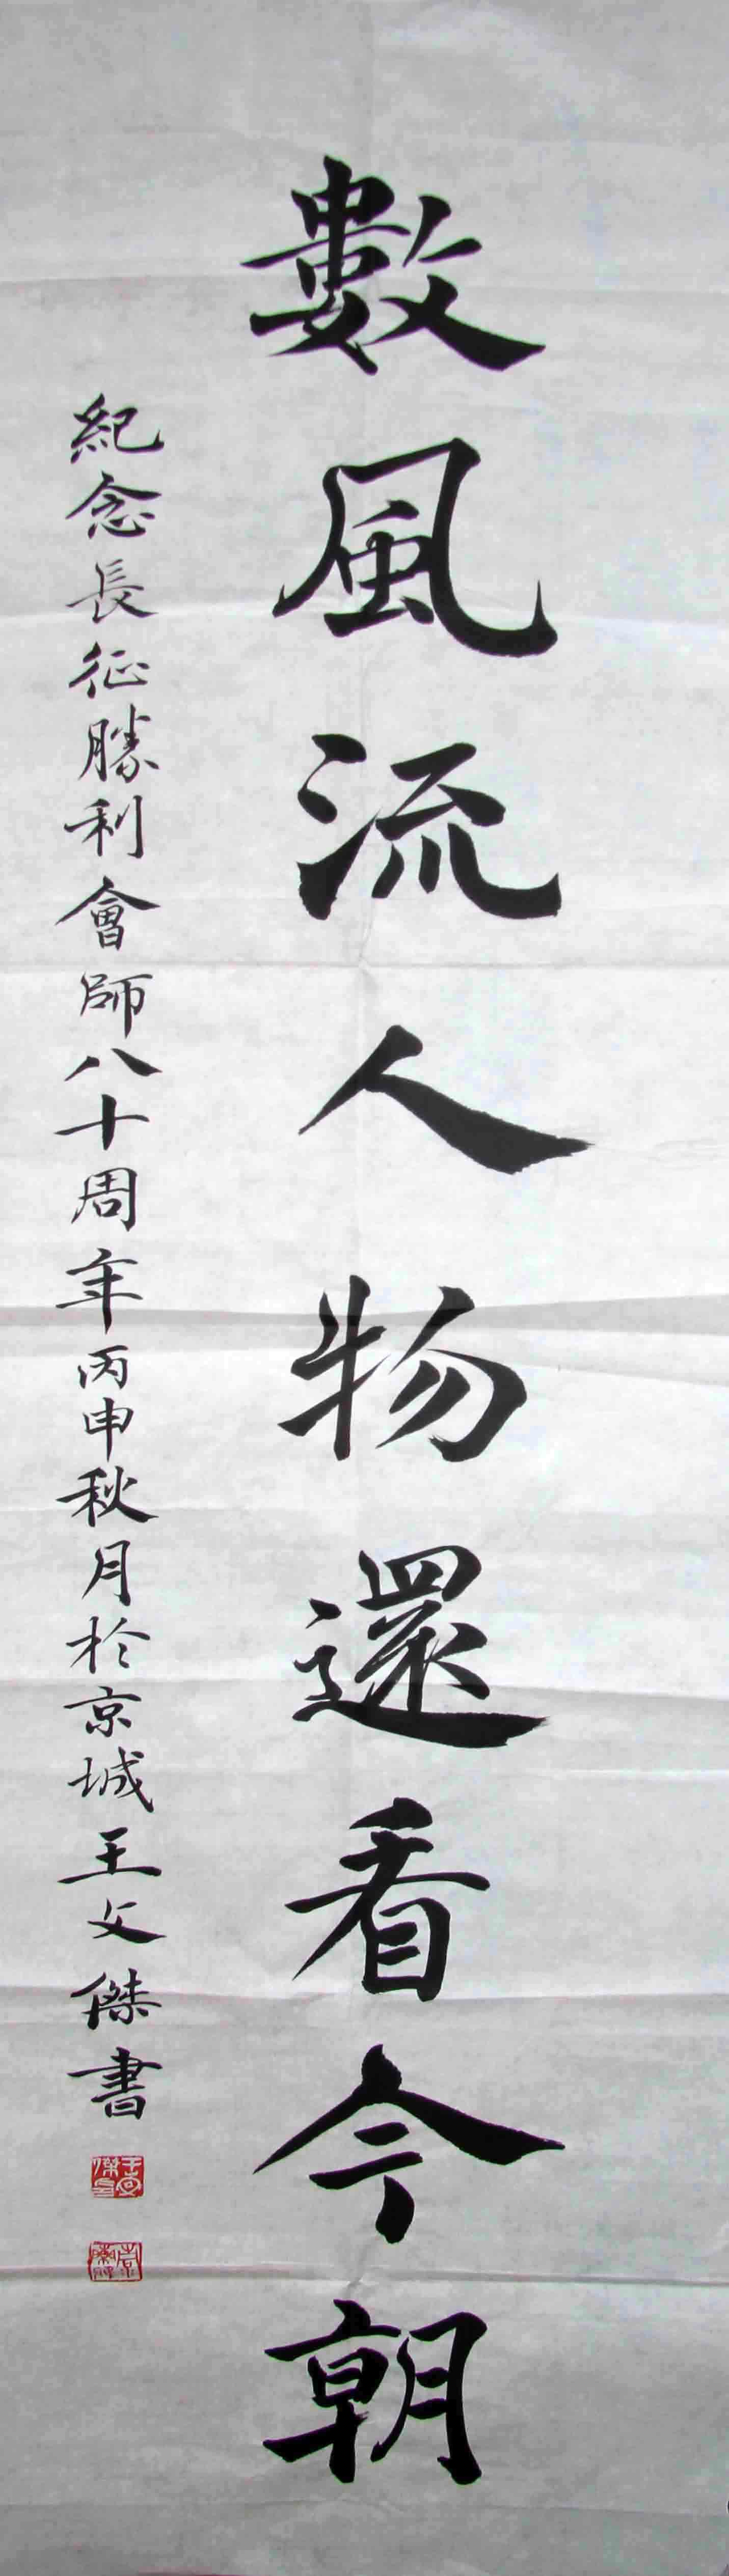 數風流人物還看今朝
紀念長征勝利會師八十周年丙申秋月於京城王文傑書